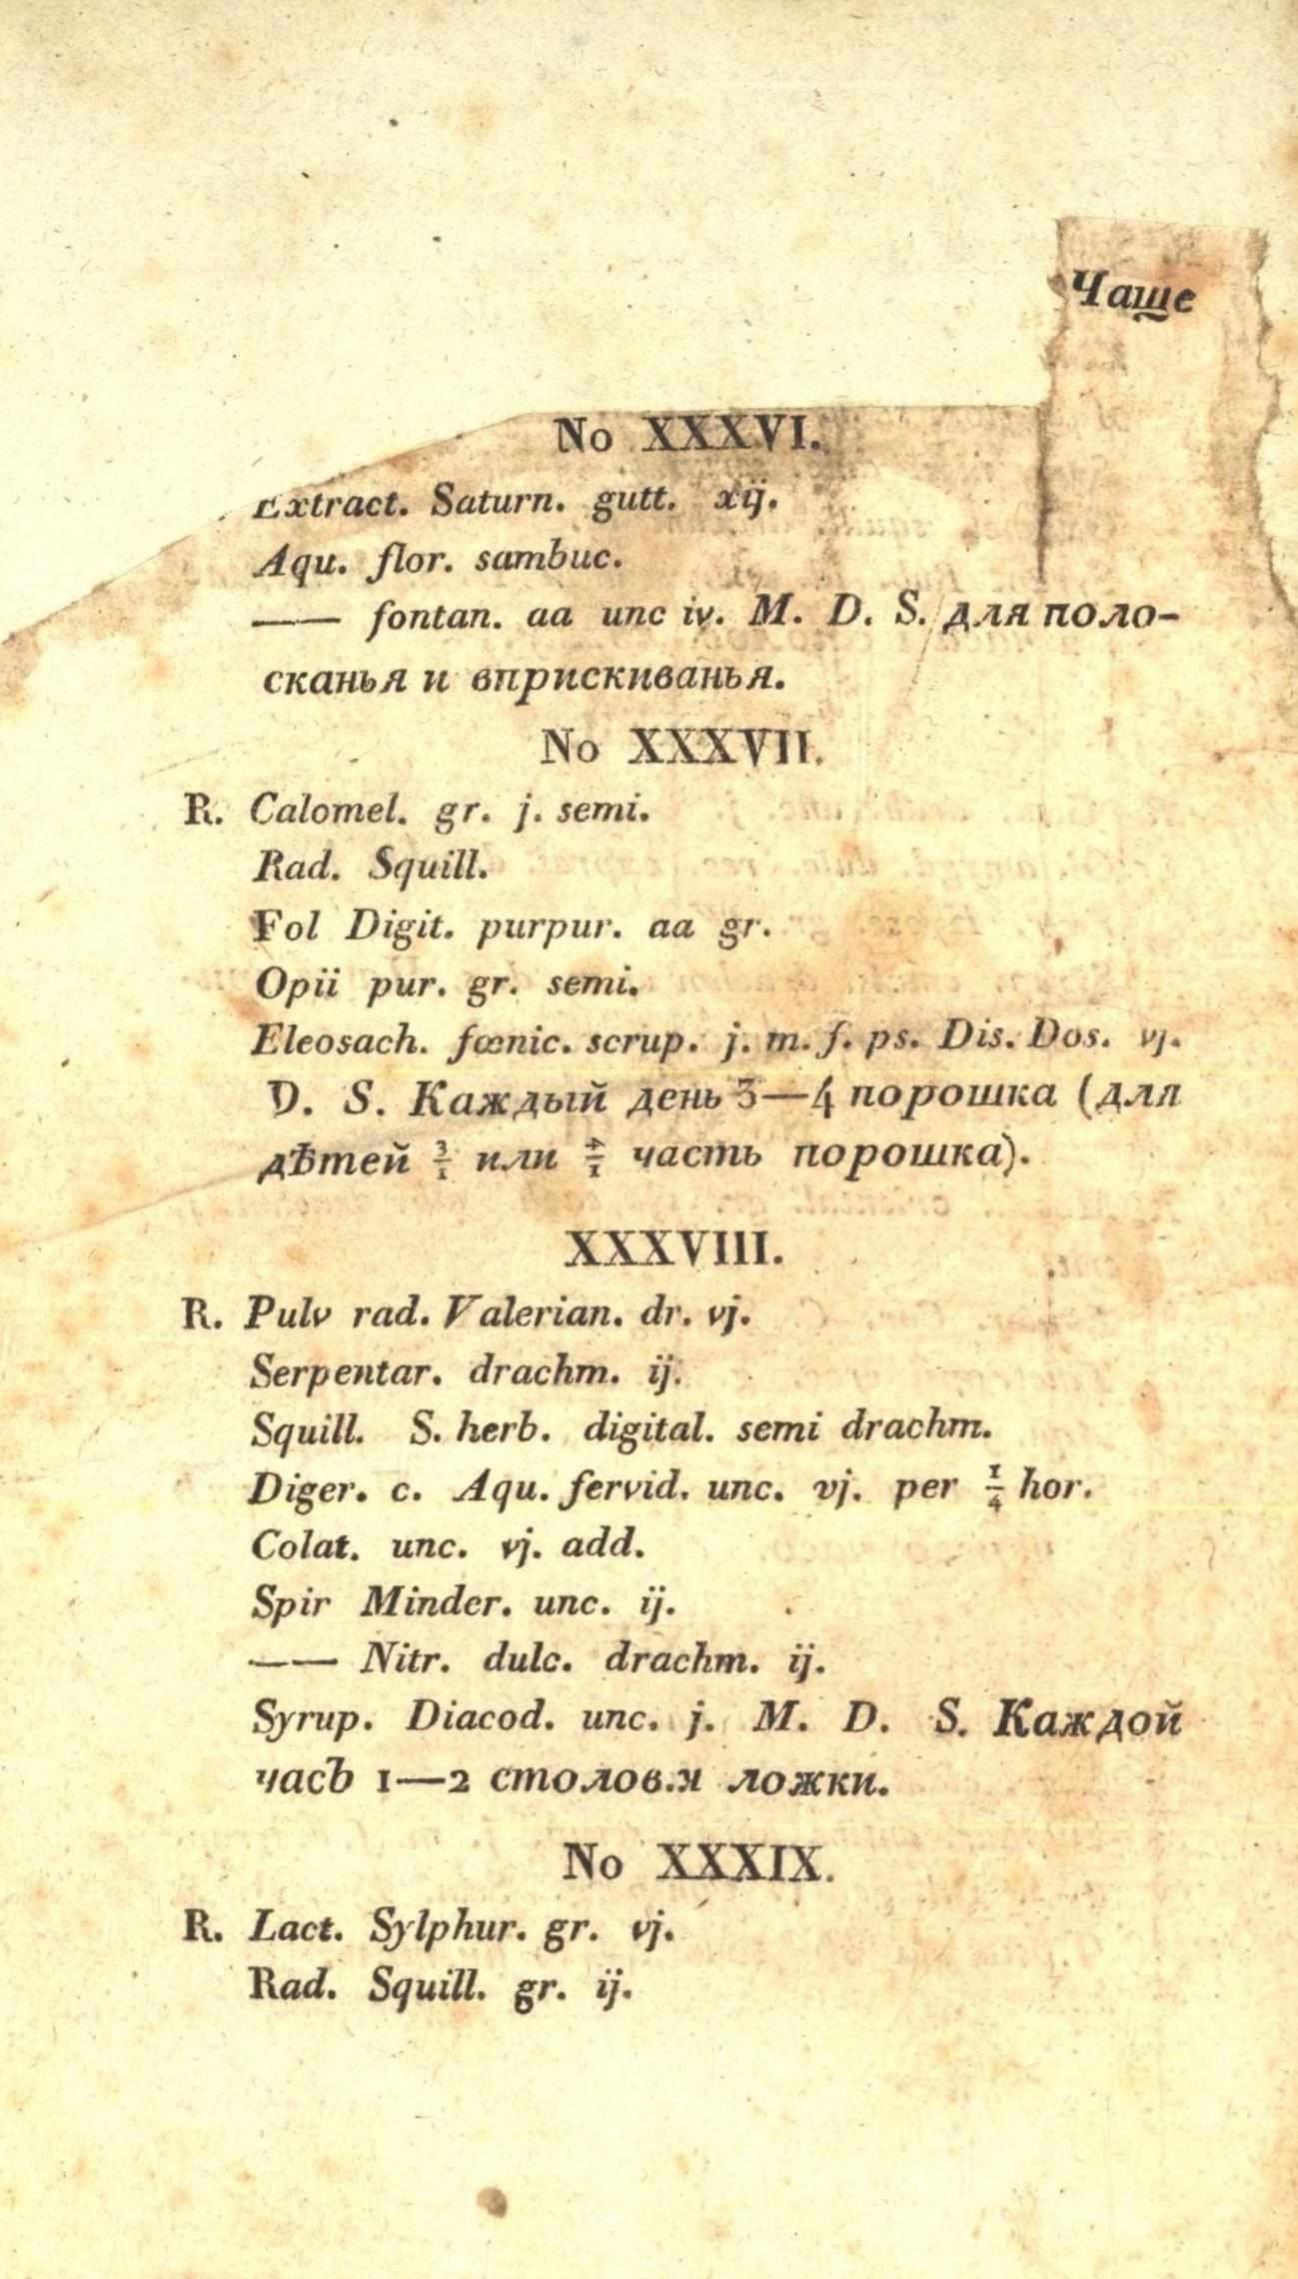 Чаще
No XXXVI.
Extract. Saturn. gutt. xij.
Aqu. flor. sambuc.
—— fontan. aa unc iv. M. D. S. для поло-
сканья и вприскиванья.
No XXXVII.
R. Calomel. gr. j. semi.
Rad. Squill.
Fol Digit. purpur. aa gr.
Opii pur. gr. semi.
Eleosach. fœnic. scrup. j. m. f. ps. Dis. Dos. vj.
D. S. Каждый день 3—4 порошка (для
дѣтей 3/1 или 4/1 часть порошка).
XXXVIII.
R. Pulv rad. Valerian. dr. vj.
Serpentar. drachm. ij.
Squill. S. herb. digital. semi drachm.
Diger. c. Aqu. fervid. unc. vj. per 1/4 hor.
Colat. unc. vj. add.
Spir Minder. unc. ij.
—— Nitr. dulc. drachm. ij.
Syrup. Diacod. unc. j. M. D. S. Каждой
часъ 1—2 столов.я ложки.
No XXXIX.
R. Lact. Sylphur. gr. vj.
Rad. Squill. gr. ij.